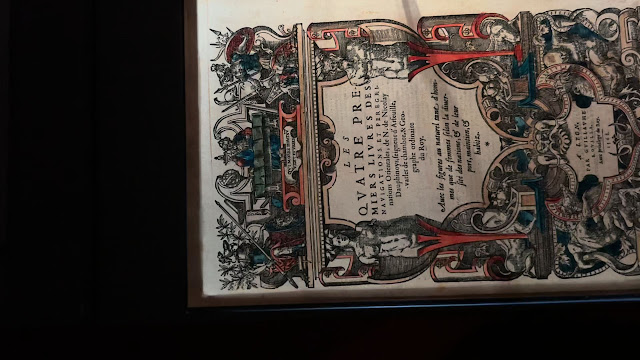 LES
QVATRE PRE-
MIERS LIVRES DES
NAVIGATIONS ET PEREGRI-
nations Orientales, de N. de Nicolay
Dauphinoys, seigneur d'Arfeuille,
varlet de chambre, & Geo-
graphe ordinaire
du Roy.
Auec les figures au naturel tant d'hom-
mes que de femmes selon la diuer-
sité des nations, & de leur
port, maintien, &
habitz.
A LYON,
PAR GVILLAVME